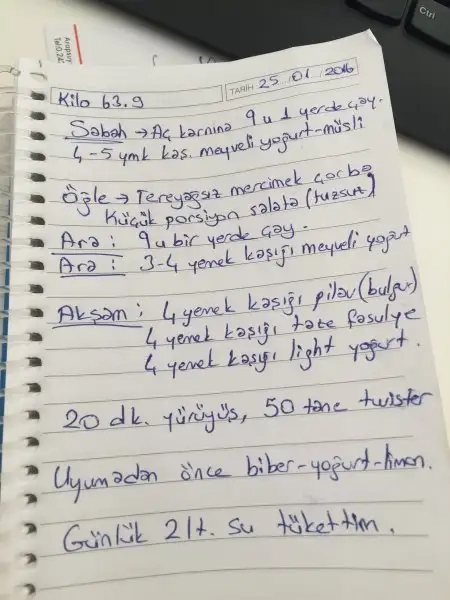 Ctrl
Kilo 63.9
TARİH 25 /01 /2016
Sabah → Aç karnına 9 u 1 yerde çay.
4-5 ymk kaş. meyveli yoğurt-müsli
Öğle → Tereyağsız mercimek çorba
Küçük porsiyon salata (tuzsuz)
Ara : 9 u bir yerde çay.
Ara : 3-4 yemek kaşığı meyveli yoğurt
Akşam : 4 yemek kaşığı pilav (bulgur)
4 yemek kaşığı taze fasulye
4 yemek kaşığı light yoğurt.
20 dk. yürüyüş, 50 tane twister
Uyumadan önce biber-yoğurt-limon.
Günlük 2 lt. su tükettim.